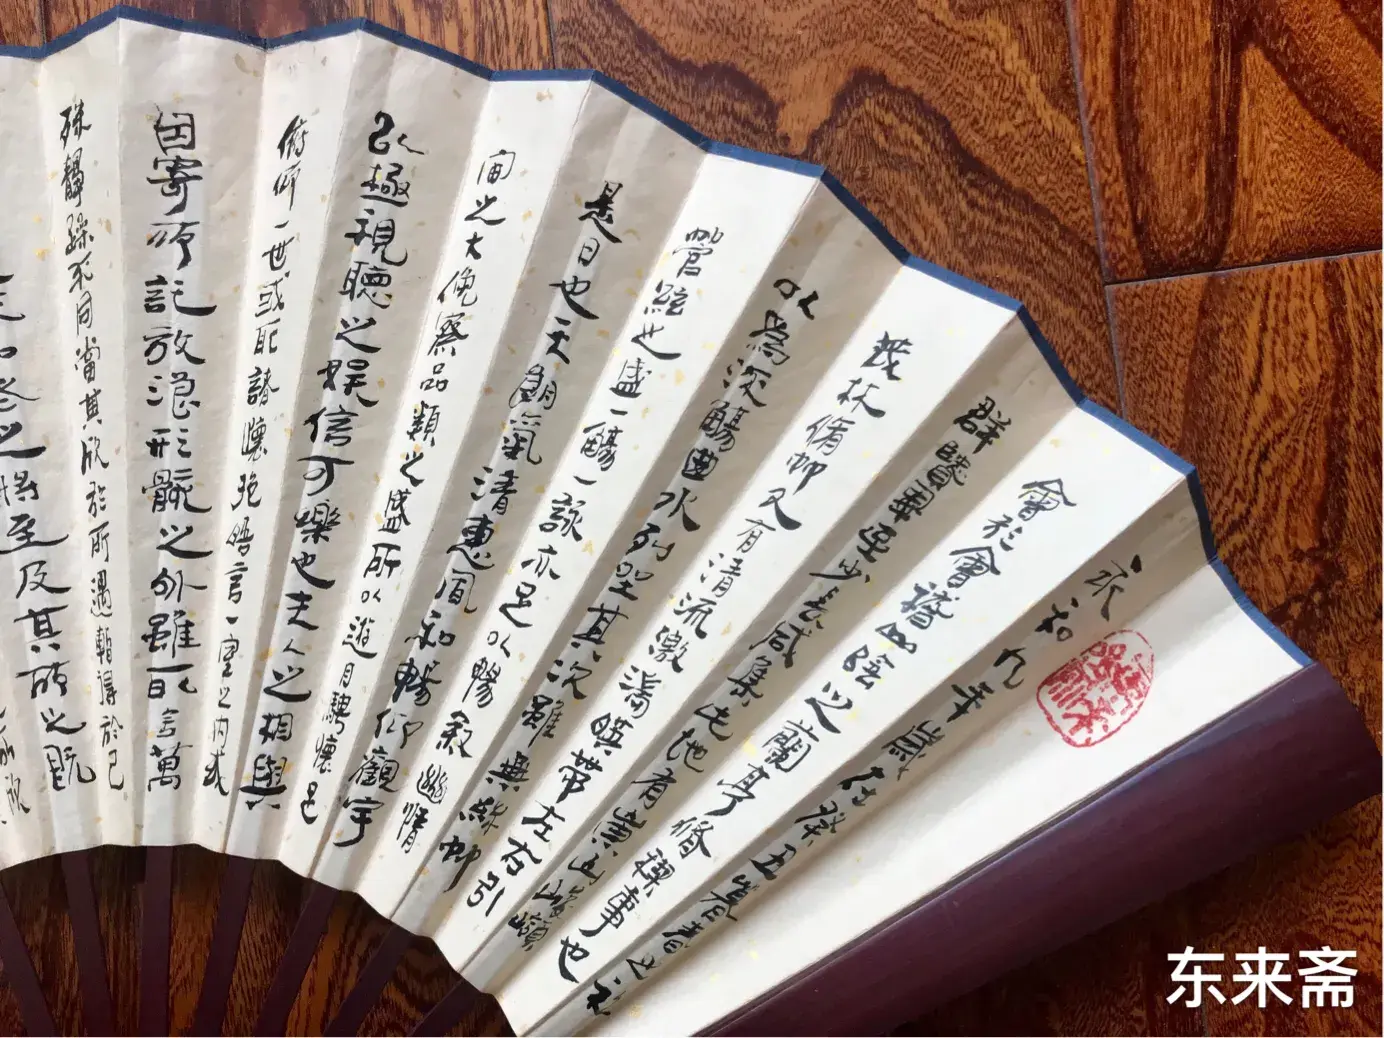 永和九年歲在癸丑暮春之初
會於會稽山陰之蘭亭脩禊事也
群賢畢至少長咸集此地有崇山峻嶺
茂林脩竹又有清流激湍暎帶左右引
以為流觴曲水列坐其次雖無絲竹
管絃之盛一觴一詠亦足以暢叙幽情
是日也天朗氣清惠風和暢仰觀宇
宙之大俛察品類之盛所以遊目騁懷足
以極視聽之娛信可樂也夫人之相與
俯仰一世或取諸懷抱悟言一室之内或
因寄所託放浪形骸之外雖取舍萬
殊靜躁不同當其欣於所遇暫得於己
老之將至及其所之既
东来斋